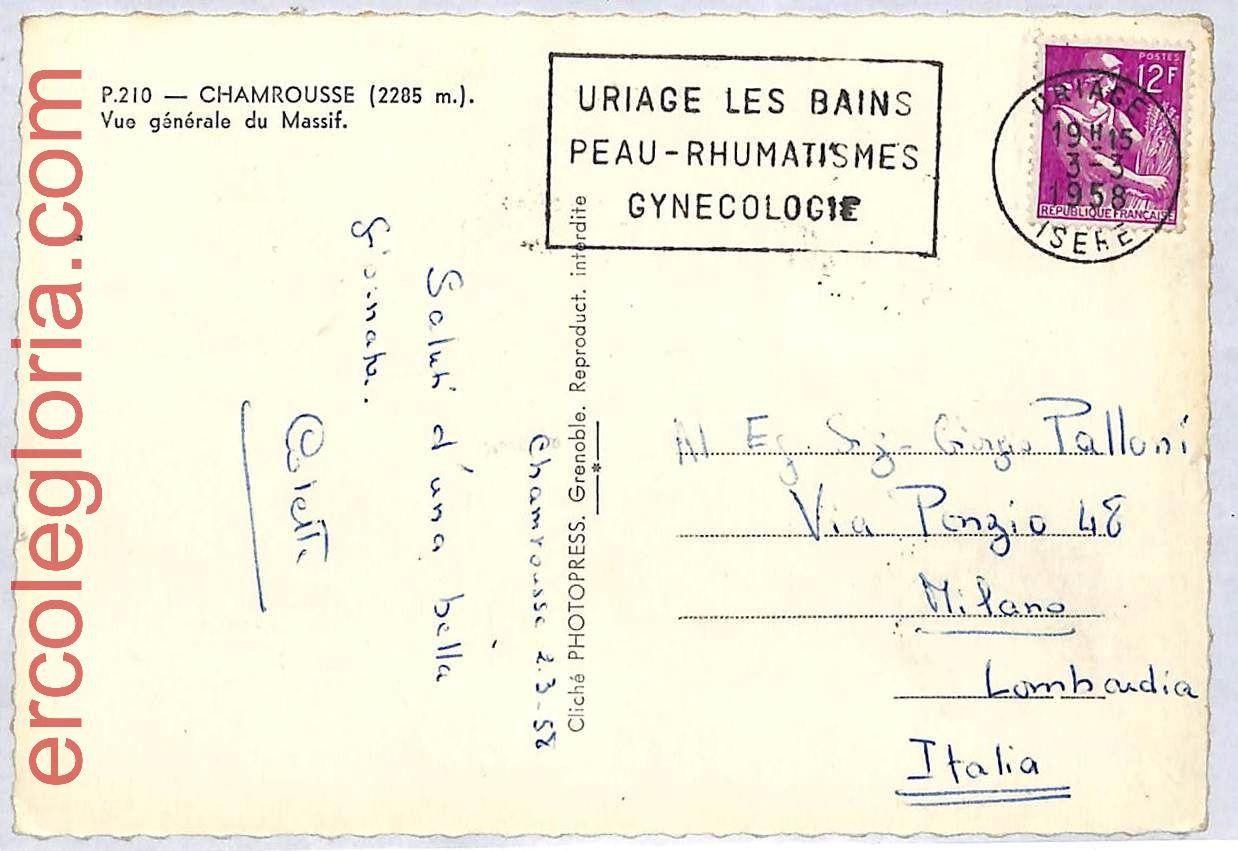 P.210 — CHAMROUSSE (2285 m.).
Vue générale du Massif.
URIAGE LES BAINS
PEAU-RHUMATISMES
GYNECOLOGIE
POSTES
12F
REPUBLIQUE FRANÇAISE
URIAGE
19H15
3-3
1958
ISERE
Chamrousse 2.3-58
Saluti d'una bella
Colette
Cliché PHOTOPRESS. Grenoble. Reproduct. interdite
Al Eg. Sig. Giorgio Palloni
Via Ponzio 48
Milano
Lombardia
Italia
ercolegloria.com